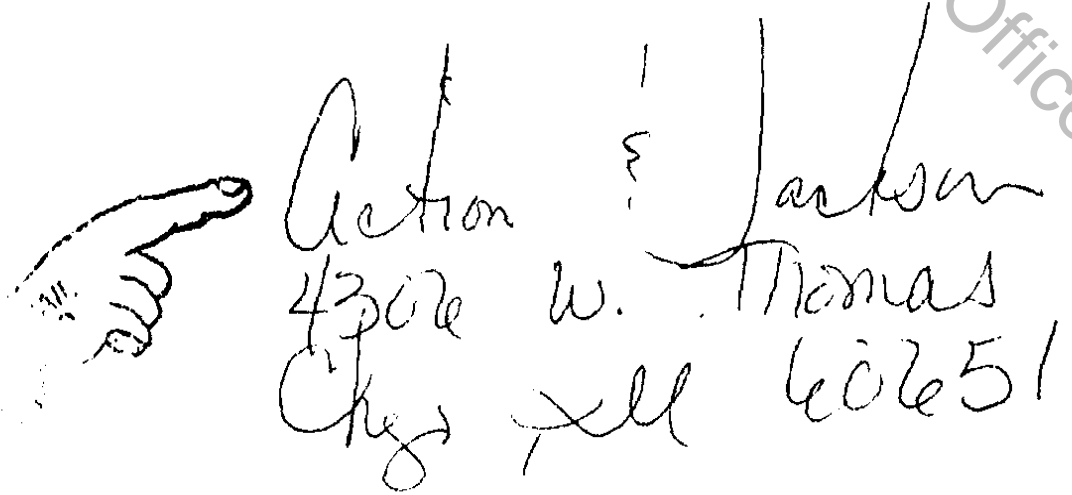 Office
Action & Jackson
4306 W. Thomas
Chgo, Ill 60651